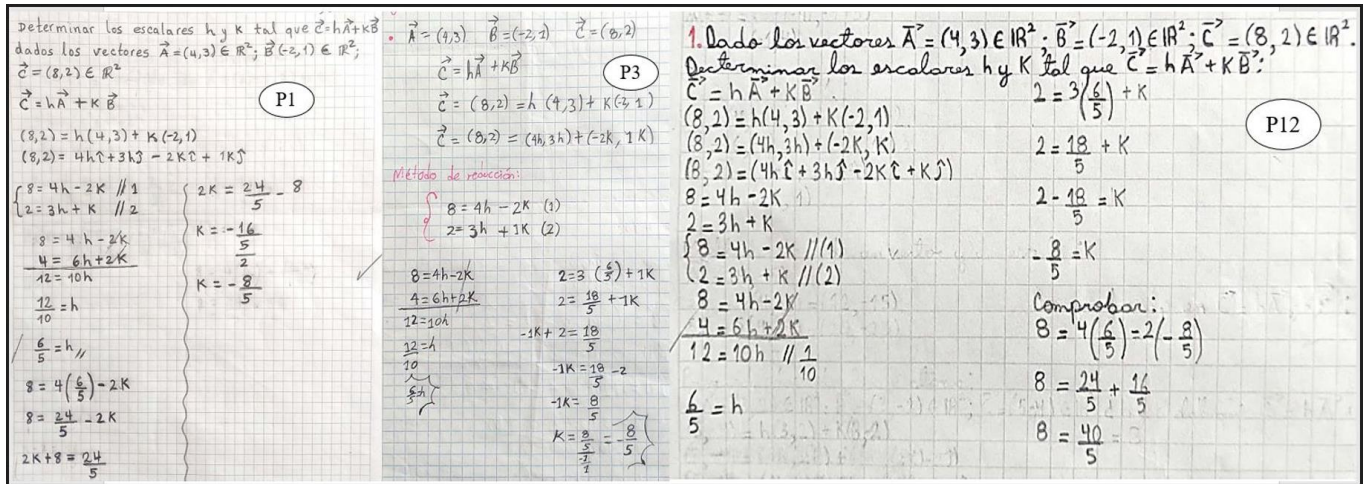 Determinar los escalares h y K tal que C⃗=hA⃗+KB⃗
dados los vectores A⃗=(4,3)∈ℝ²; B⃗(-2,1)∈ℝ²;
C⃗=(8,2)∈ℝ²
P1
C⃗=hA⃗+KB⃗
(8,2)=h(4,3)+K(-2,1)
(8,2)=4hî+3hĵ-2Kî+1Kĵ
8=4h-2K //1
2=3h+K //2
8=4h-2K
4=6h+2K
12=10h
12/10=h
6/5=h//
8=4(6/5)-2K
8=24/5-2K
2K+8=24/5
2K=24/5-8
K=-16/5/2
K=-8/5
A⃗=(4,3) B⃗=(-2,1) C⃗=(8,2)
C⃗=hA⃗+KB⃗
P3
C⃗=(8,2)=h(4,3)+K(-2,1)
C⃗=(8,2)=(4h,3h)+(-2K,1K)
Método de reducción:
8=4h-2K (1)
2=3h+1K (2)
8=4h-2K
4=6h+2K
12=10h
12/10=h
6/5=h
2=3(6/5)+1K
2=18/5+1K
-1K+2=18/5
-1K=18/5-2
-1K=8/5
K=8/5/-1/1=-8/5
1. Dado los vectores A⃗=(4,3)∈ℝ²; B⃗=(-2,1)∈ℝ²; C⃗=(8,2)∈ℝ².
Decterminar los escalares h y K tal que C⃗=hA⃗+KB⃗:
P12
C⃗=hA⃗+KB⃗
(8,2)=h(4,3)+K(-2,1)
(8,2)=(4h,3h)+(-2K,K)
(8,2)=(4hî+3hĵ-2Kî+Kĵ)
8=4h-2K
2=3h+K
8=4h-2K //(1)
2=3h+K //(2)
8=4h-2K
4=6h+2K
12=10h //1/10
6/5=h
2=3(6/5)+K
2=18/5+K
2-18/5=K
-8/5=K
Comprobar:
8=4(6/5)=2(-8/5)
8=24/5+16/5
8=40/5